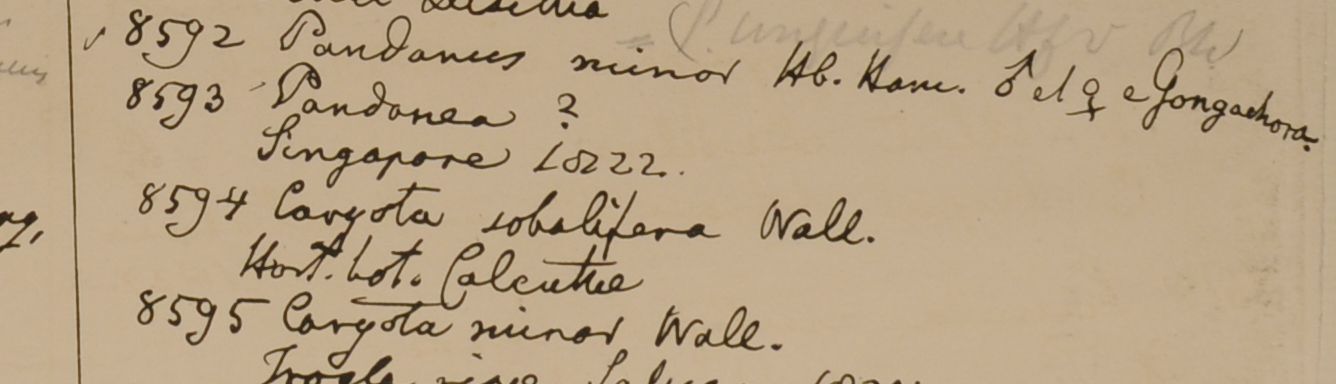 8592 Pandanus minor Hb. Ham. ♂ et ♀ e Gongachora.
8593 Pandanea ?
Singapore 1822.
8594 Caryota sobolifera Wall.
Hort. bot. Calcuttae
8595 Caryota minor Wall.